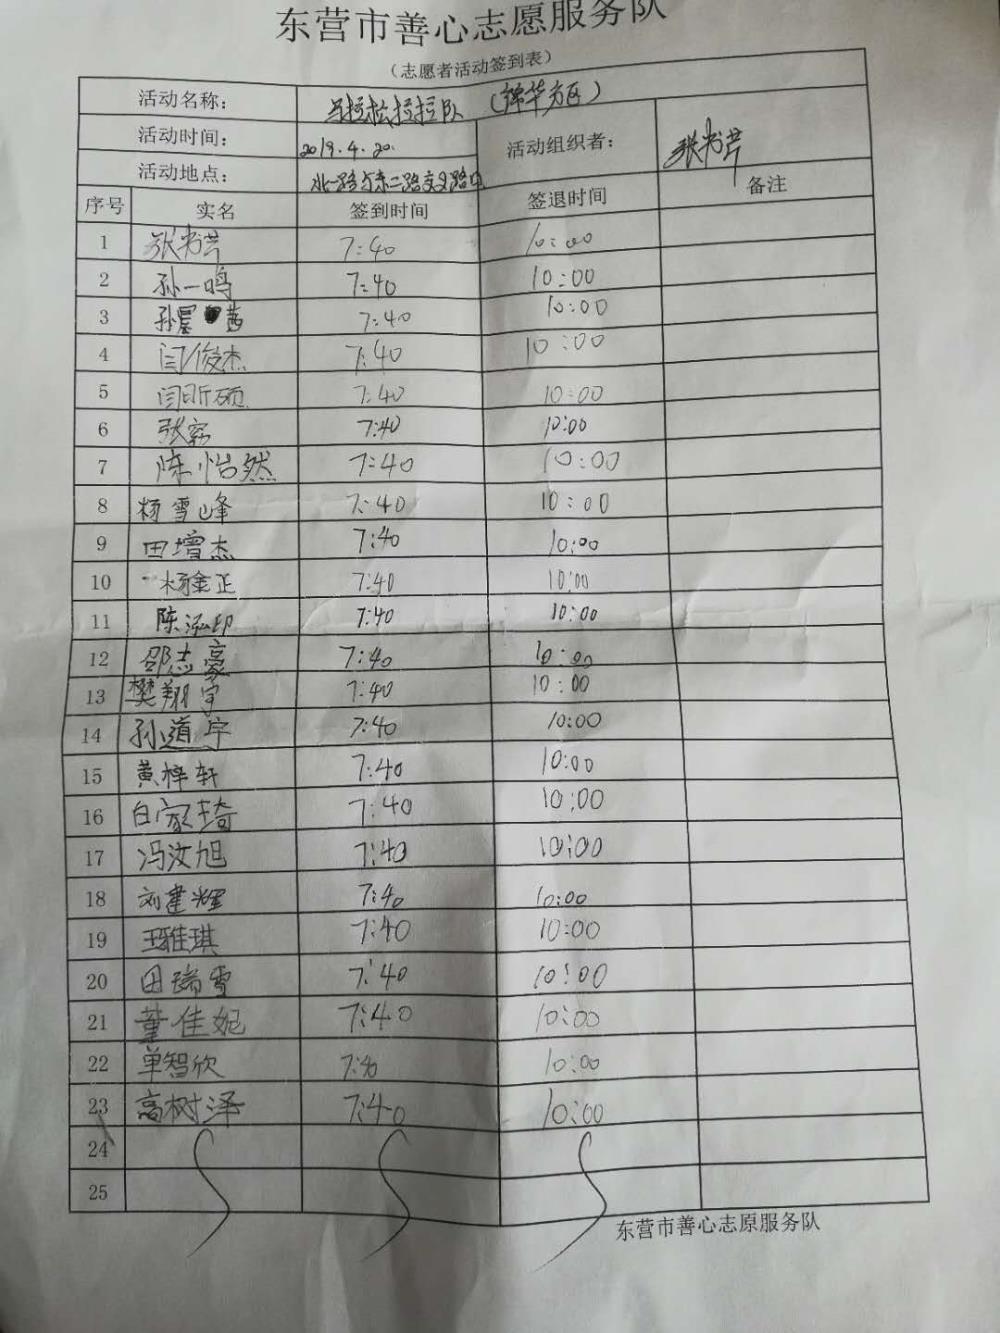 东营市善心志愿服务队
（志愿者活动签到表）
活动名称： 马拉松拉拉队（锦华方区）
活动时间： 2019.4.20. 活动组织者： 张书芸
活动地点： 北一路与东二路交叉路口
序号 实名 签到时间 签退时间 备注
1 张书芸 7:40 10:00
2 孙一鸣 7:40 10:00
3 孙 茜 7:40 10:00
4 闫俊杰 7:40 10:00
5 闫昕硕 7:40 10:00
6 张 7:40 10:00
7 陈怡然 7:40 10:00
8 杨雪峰 7:40 10:00
9 田增杰 7:40 10:00
10 杨金正 7:40 10:00
11 陈泓印 7:40 10:00
12 邵志豪 7:40 10:00
13 樊翔宇 7:40 10:00
14 孙道宇 7:40 10:00
15 黄梓轩 7:40 10:00
16 白家琦 7:40 10:00
17 冯汝旭 7:40 10:00
18 刘建辉 7:40 10:00
19 王雅琪 7:40 10:00
20 田瑞雪 7:40 10:00
21 董佳妮 7:40 10:00
22 单智欣 7:40 10:00
23 高树泽 7:40 10:00
24
25
东营市善心志原服务队